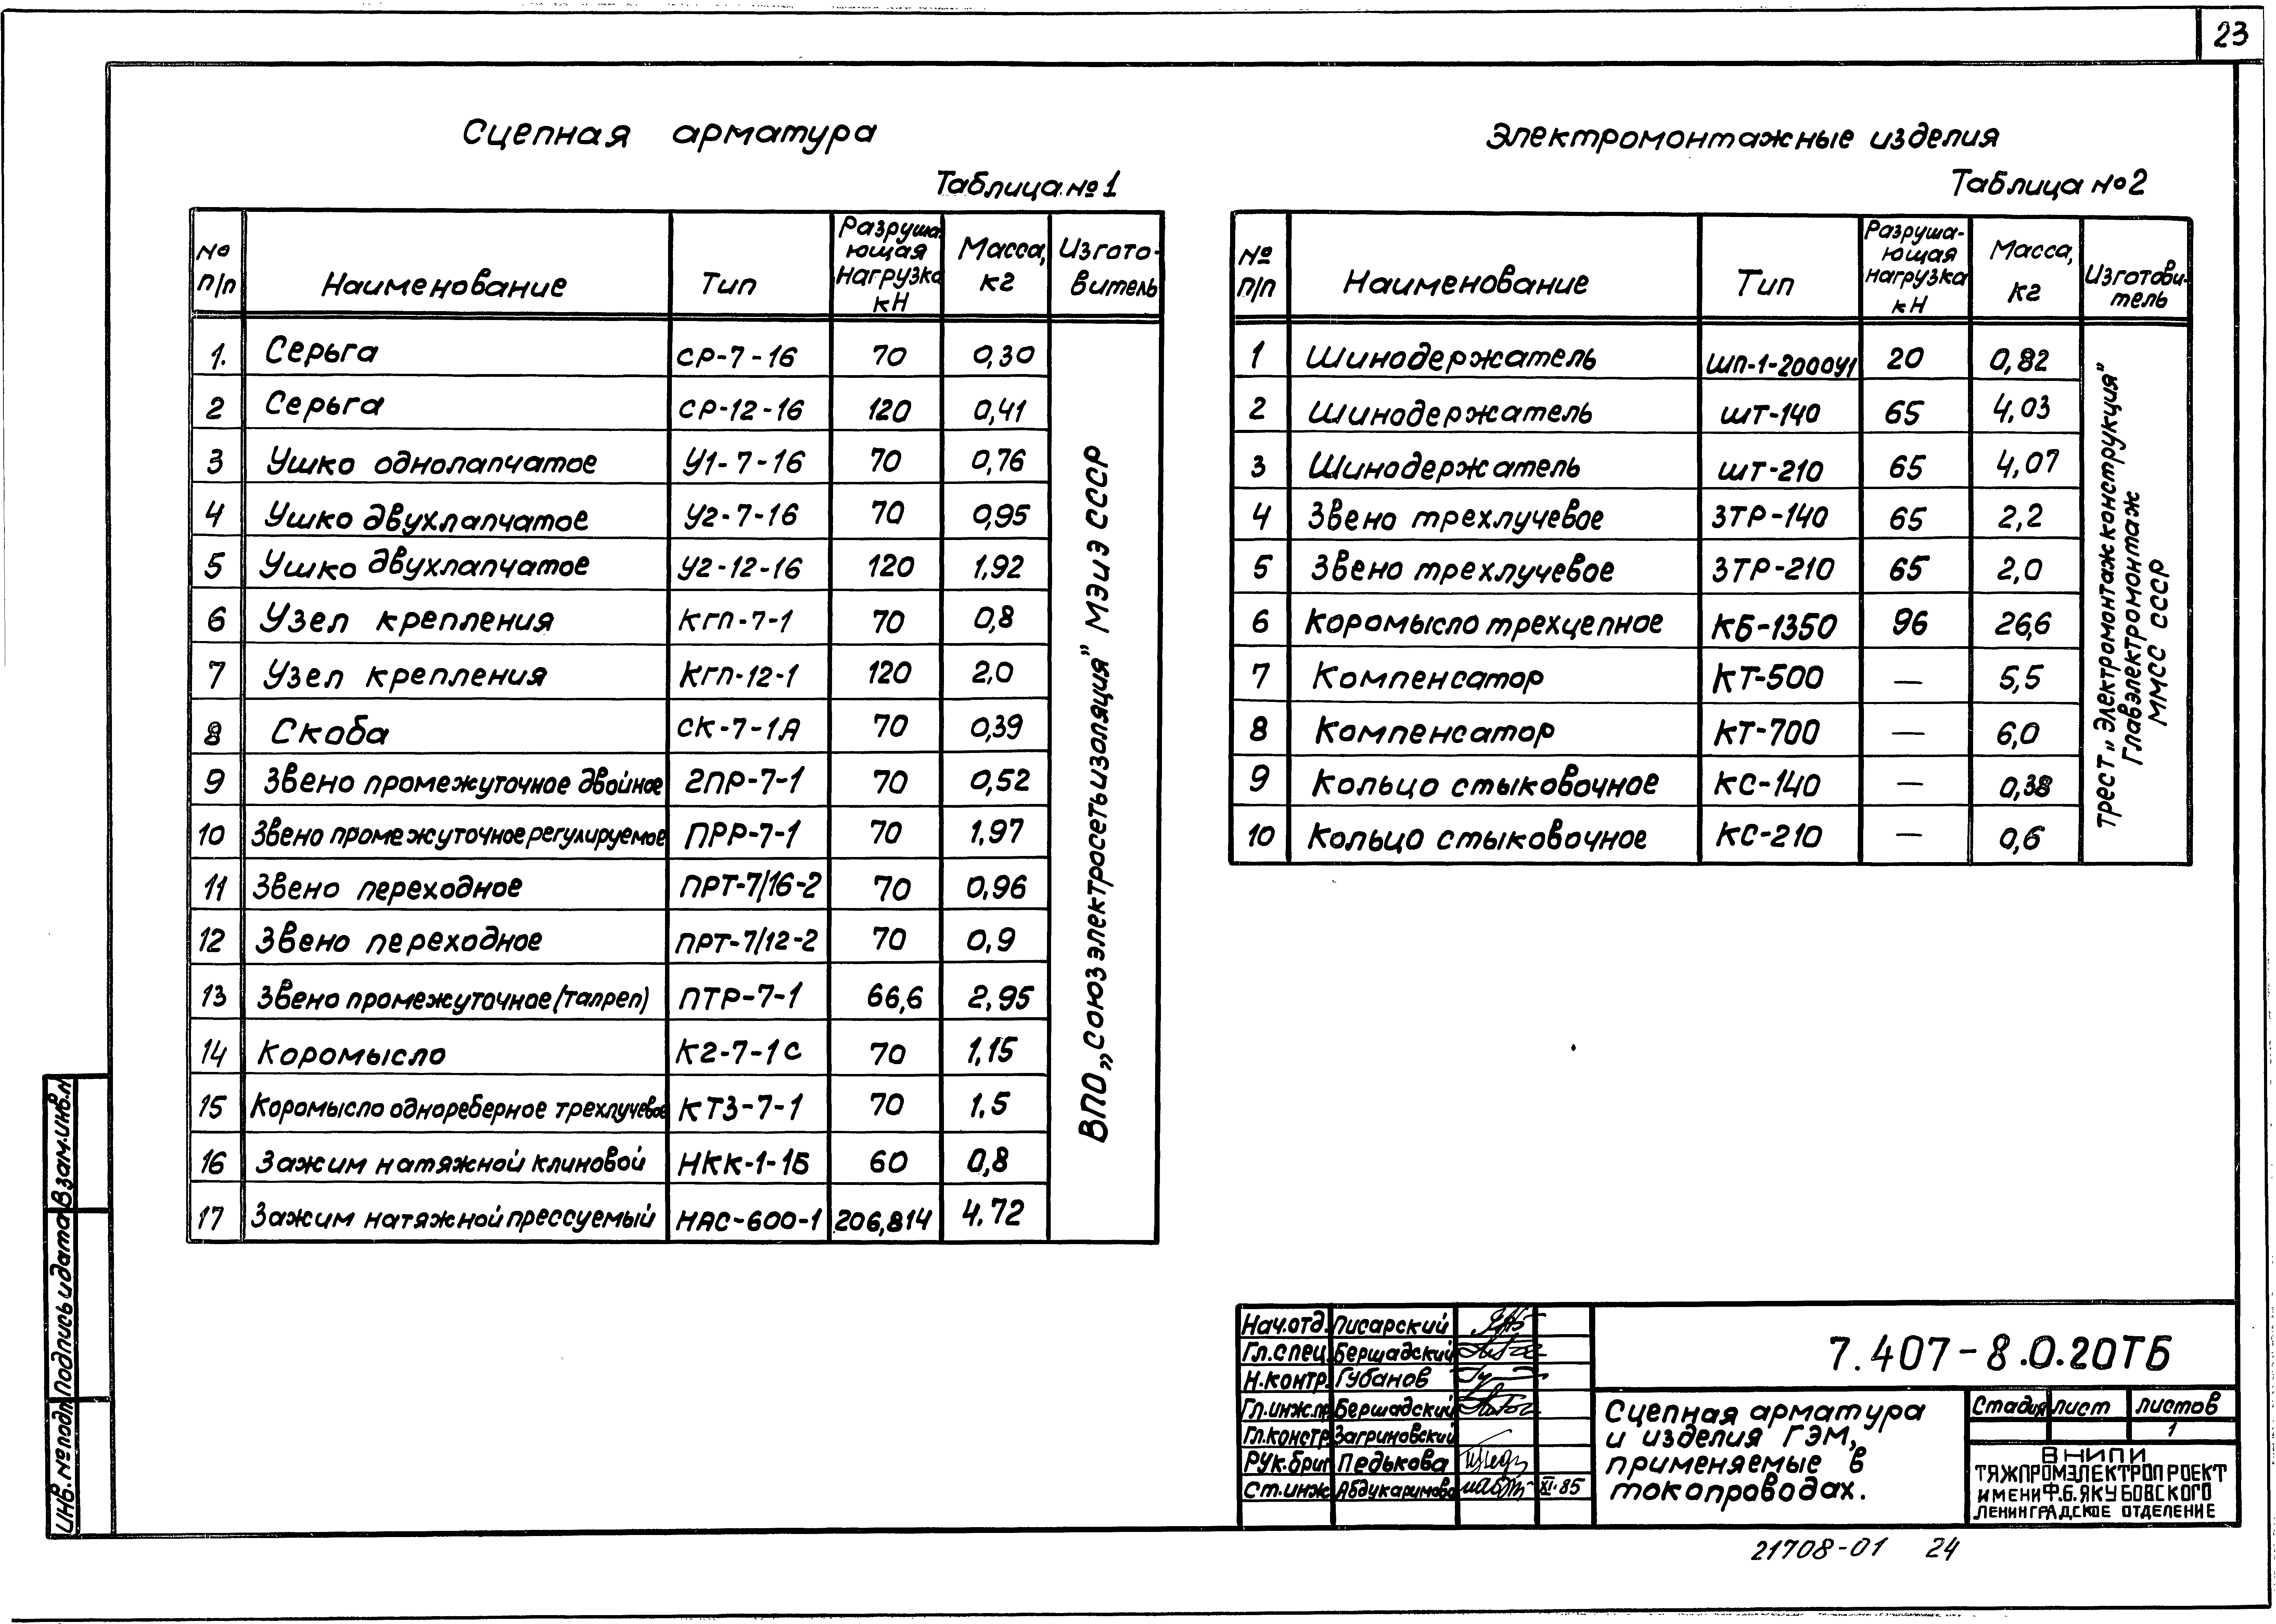 23
Сцепная арматура
Таблица №1
№ п/п Наименование Тип Разруша-ющая нагрузка кН Масса, кг Изгото-витель
1. Серьга СР-7-16 70 0,30
2 Серьга СР-12-16 120 0,41
3 Ушко однолапчатое У1-7-16 70 0,76
4 Ушко двухлапчатое У2-7-16 70 0,95
5 Ушко двухлапчатое У2-12-16 120 1,92
6 Узел крепления КГП-7-1 70 0,8
7 Узел крепления КГП-12-1 120 2,0
8 Скоба СК-7-1А 70 0,39
9 Звено промежуточное двойное 2ПР-7-1 70 0,52
10 Звено промежуточное регулируемое ПРР-7-1 70 1,97
11 Звено переходное ПРТ-7/16-2 70 0,96
12 Звено переходное ПРТ-7/12-2 70 0,9
13 Звено промежуточное (талреп) ПТР-7-1 66,6 2,95
14 Коромысло К2-7-1С 70 1,15
15 Коромысло однореберное трехлучевое КТ3-7-1 70 1,5
16 Зажим натяжной клиновой НКК-1-1Б 60 0,8
17 Зажим натяжной прессуемый НАС-600-1 206,814 4,72
ВПО „Союзэлектросетьизоляция” МЭиЭ СССР
Электромонтажные изделия
Таблица №2
№ п/п Наименование Тип Разруша-ющая нагрузка кН Масса, кг Изготови-тель
1 Шинодержатель ШП-1-2000У1 20 0,82
2 Шинодержатель ШТ-140 65 4,03
3 Шинодержатель ШТ-210 65 4,07
4 Звено трехлучевое ЗТР-140 65 2,2
5 Звено трехлучевое ЗТР-210 65 2,0
6 Коромысло трехцепное КБ-1350 96 26,6
7 Компенсатор КТ-500 — 5,5
8 Компенсатор КТ-700 — 6,0
9 Кольцо стыковочное КС-140 — 0,38
10 Кольцо стыковочное КС-210 — 0,6
Трест „Электромонтажконструкция”
Главэлектромонтаж
ММСС СССР
Инв. № подл. Подпись и дата Взам. инв. №
Нач. отд. Писарский
Гл. спец. Бершадский
Н. контр. Губанов
Гл. инж. пр. Бершадский
Гл. констр. Загриновский
Рук. бриг. Педькова
Ст. инж. Абдукаримова XI.85
7.407-8.0.20ТБ
Сцепная арматура
и изделия ГЭМ,
применяемые в
токопроводах.
Стадия Лист Листов
1
ВНИПИ
ТЯЖПРОМЭЛЕКТРОПРОЕКТ
ИМЕНИ Ф.Б.ЯКУБОВСКОГО
ЛЕНИНГРАДСКОЕ ОТДЕЛЕНИЕ
21708-01 24